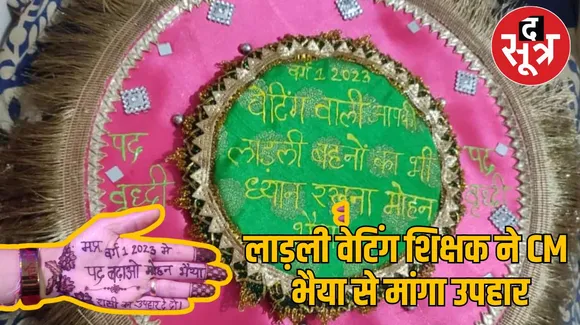 द
सूत्र
वर्ग 1 2023
वेटिंग वाली आपकी
लाड़ली बहनों का भी
ध्यान रखना मोहन
भैया
पद
वृध्दी
पद
वृध्दी
मप्र वर्ग 1 2023 मे
पद बढ़ाओ मोहन भैया
का उपहार दे दो
लाड़ली वेटिंग शिक्षक ने CM
भैया से मांगा उपहार